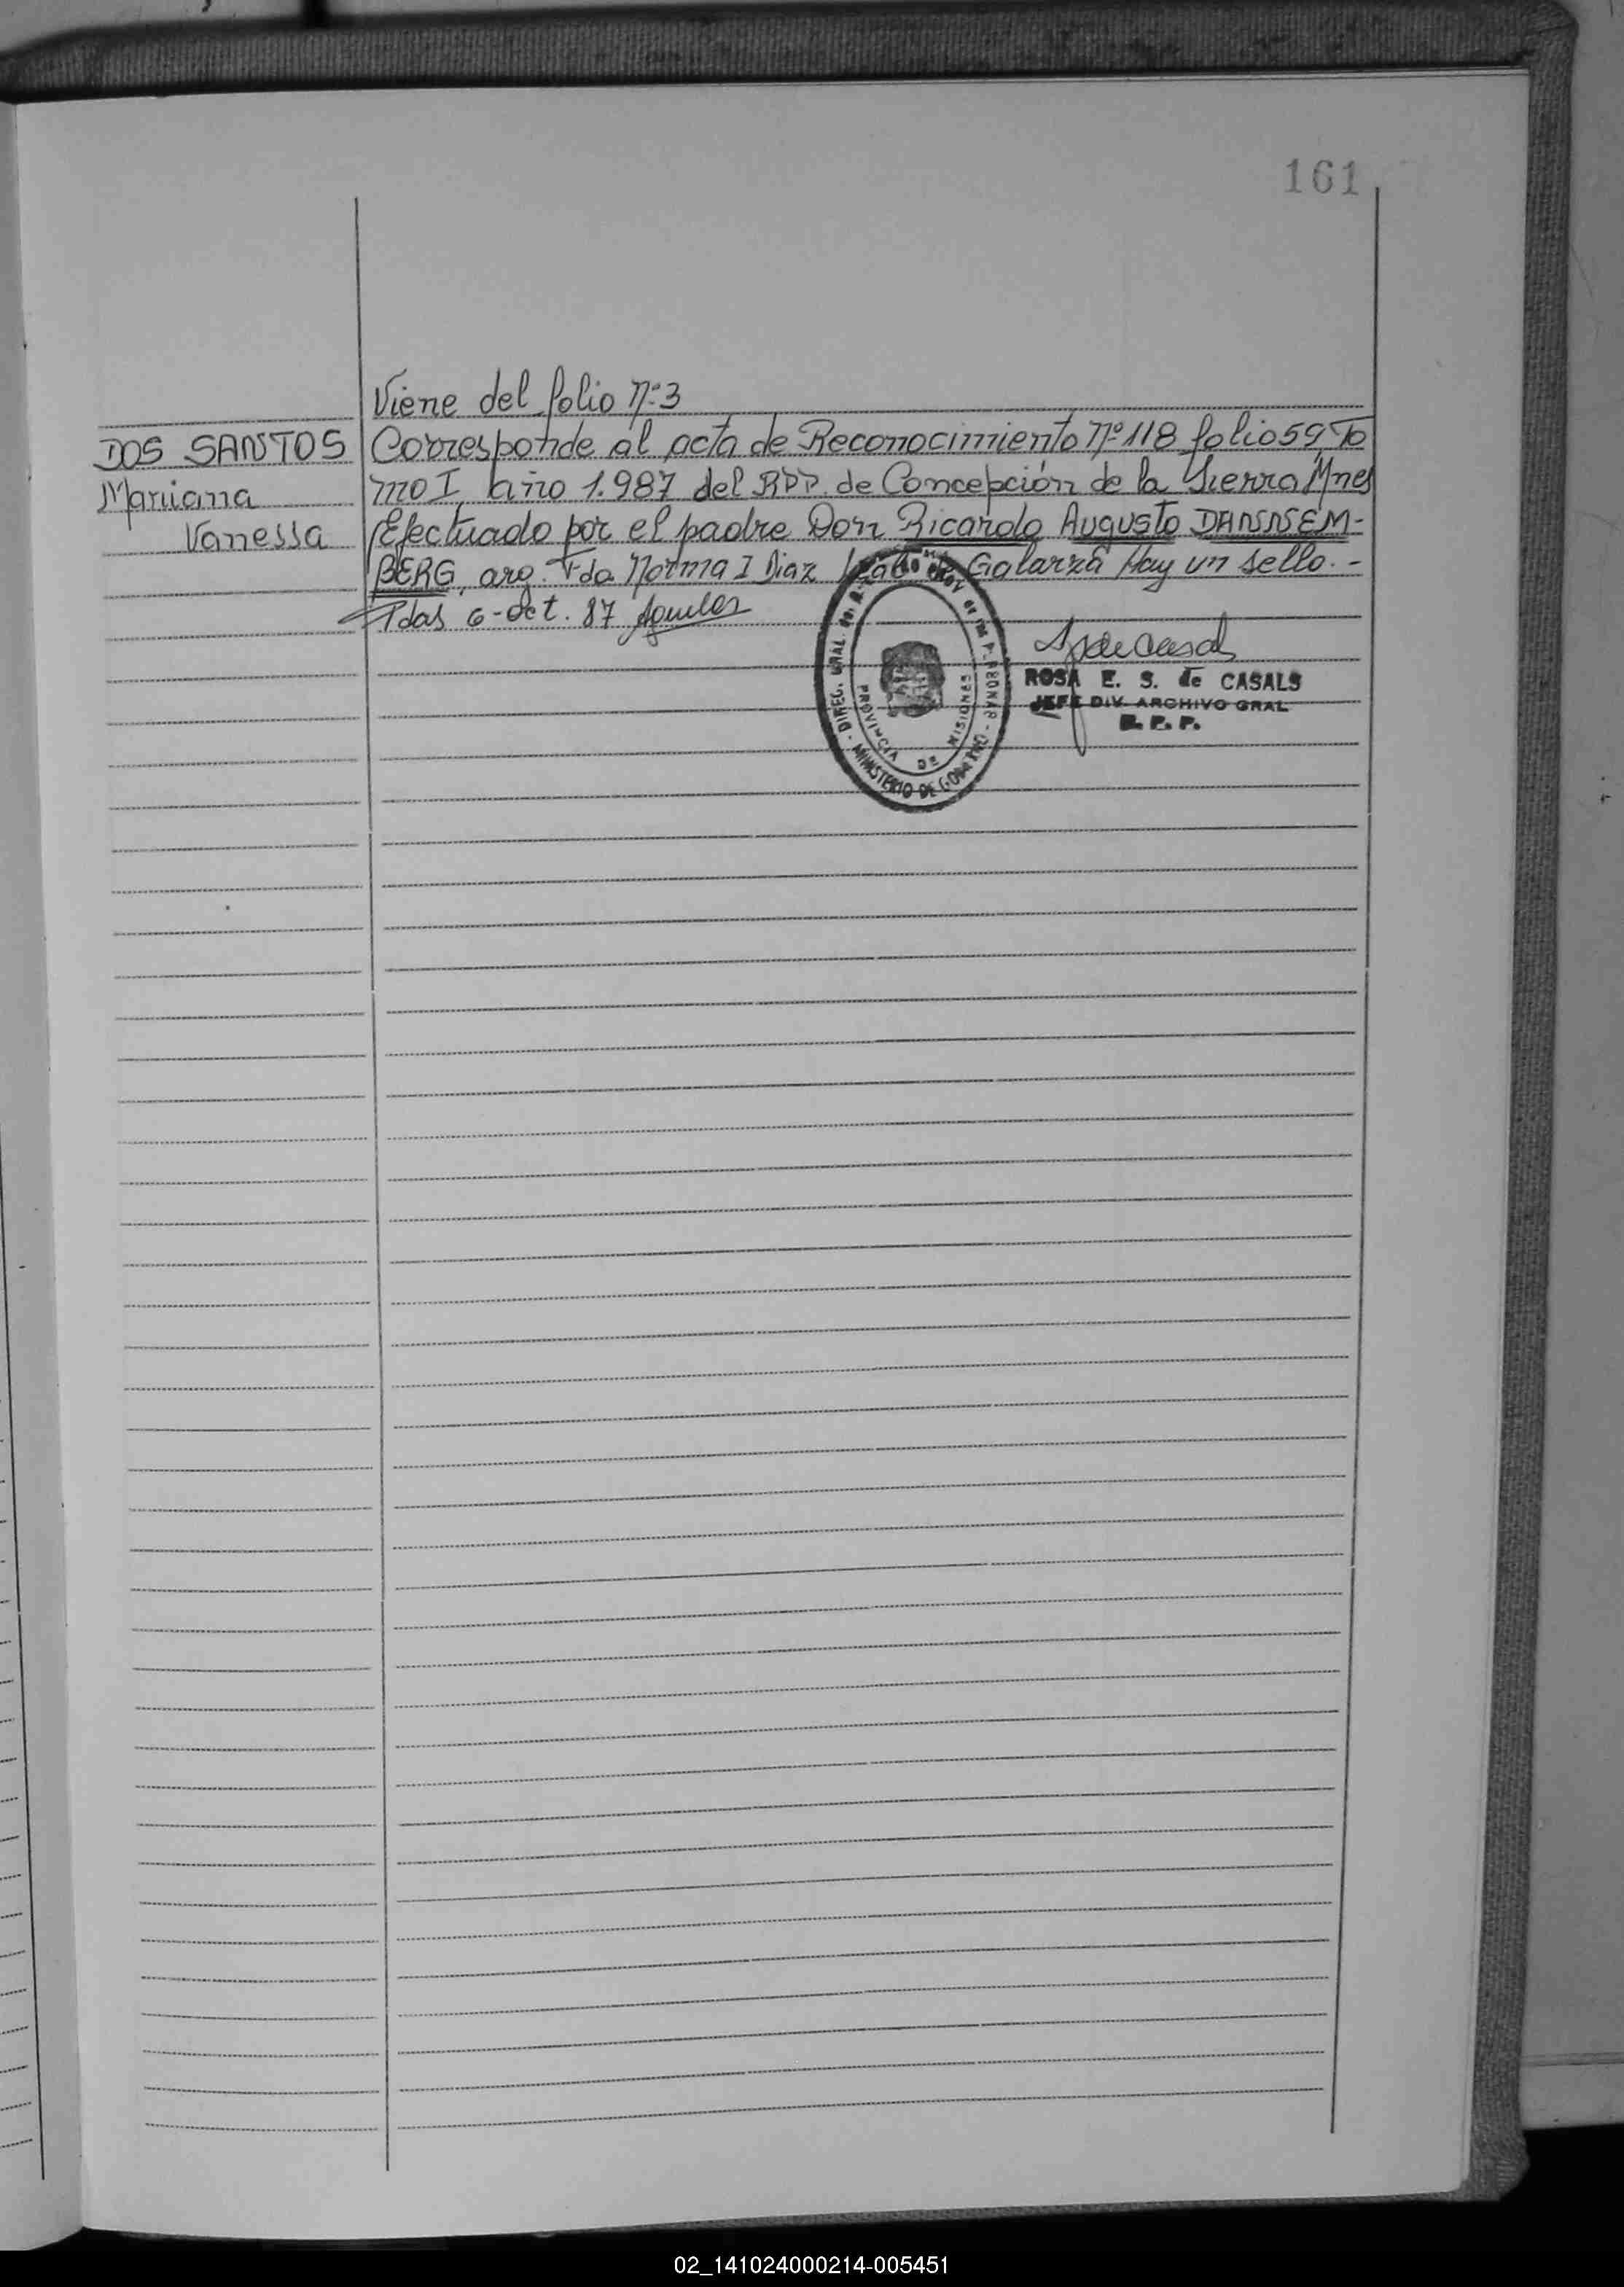 161
Viene del folio Nº 3
DOS SANTOS
Mariana
Vanessa
Corresponde al acta de Reconocimiento Nº 118 folio 59, To
mo I, año 1.987 del RPP. de Concepción de la Sierra Mnes
Efectuado por el padre Don Ricardo Augusto DANNSEM-
BERG, arg. Fdo. Norma I Diaz de Galarza Hay un sello.-
Pdas 6-Oct. 87
DIREC. GRAL.
MINISTERIO DE GOBIERNO
PROVINCIA DE MISIONES
ROSA E. S. de CASALS
JEFE DIV. ARCHIVO GRAL
R. P. P.
02_141024000214-005451